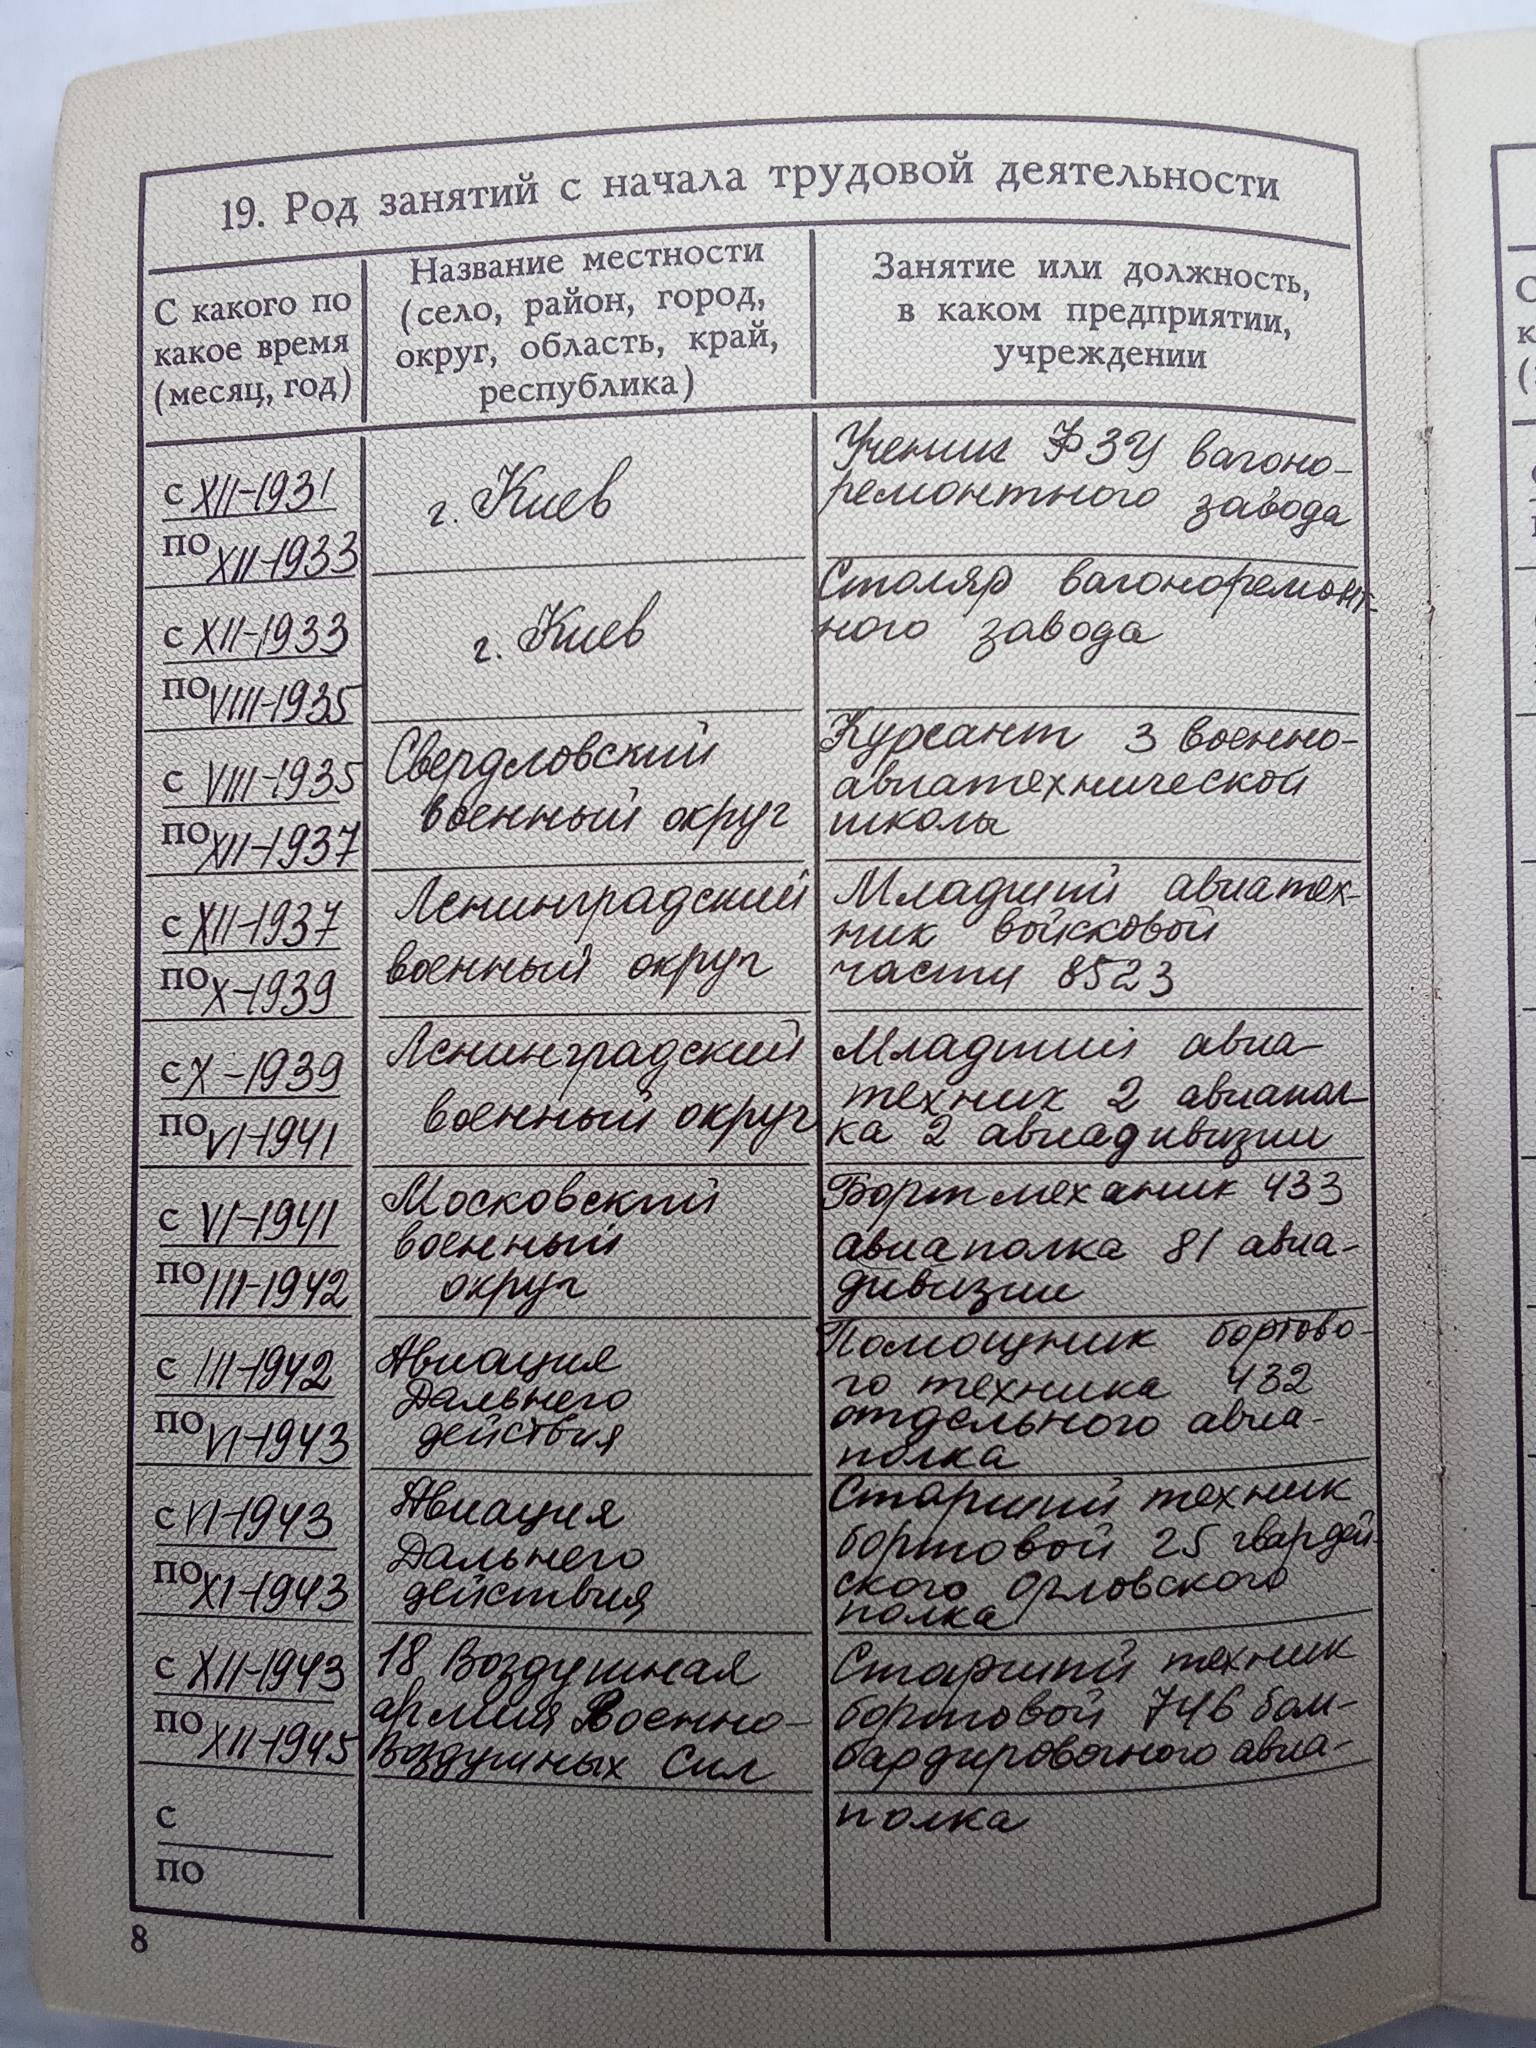 19. Род занятий с начала трудовой деятельности
С какого по
какое время
(месяц, год)
Название местности
(село, район, город,
округ, область, край,
республика)
Занятие или должность,
в каком предприятии,
учреждении
с XII-1931
по XII-1933
г. Киев
Ученик ФЗУ вагоно-
ремонтного завода
с XII-1933
по VIII-1935
г. Киев
Столяр вагоноремонт-
ного завода
с VIII-1935
по XII-1937
Свердловский
военный округ
Курсант 3 военно-
авиатехнической
школы
с XII-1937
по X-1939
Ленинградский
военный округ
Младший авиатех-
ник войсковой
части 8523
с X-1939
по VI-1941
Ленинградский
военный округ
Младший авиа-
техник 2 авиапол-
ка 2 авиадивизии
с VI-1941
по III-1942
Московский
военный
округ
Бортмеханик 433
авиаполка 81 авиа-
дивизии
с III-1942
по VI-1943
Авиация
Дальнего
действия
Помощник бортово-
го техника 432
отдельного авиа-
полка
с VI-1943
по XI-1943
Авиация
Дальнего
действия
Старший техник
бортовой 25 гвардей-
ского Орловского
полка
с XII-1943
по XII-1945
18 Воздушная
армия Военно-
Воздушных Сил
Старший техник
бортовой 746 бом-
бардировочного авиа-
полка
с
по
8